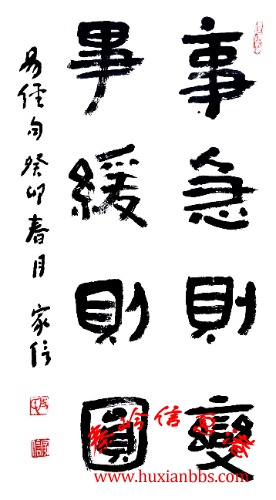 事急則變
事緩則圓
易經句癸卯春月 家信
www.huxianbbs.com